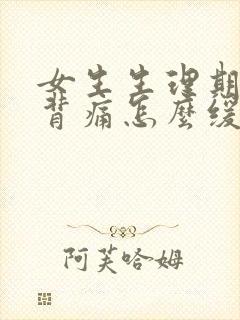 女生生理期
背痛怎麼緩
阿芙哈姆